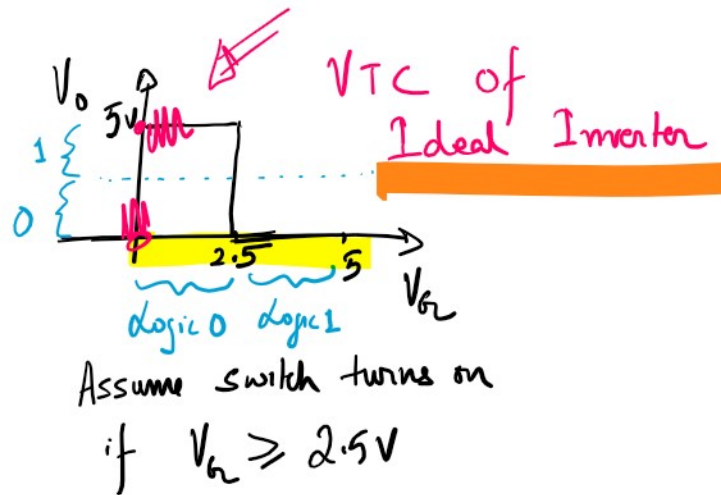 V₀
5V
1
0
VTC of
Ideal Inverter
2.5
5
V_G
Logic 0
Logic 1
Assume switch turns on
if V_G ≥ 2.5V